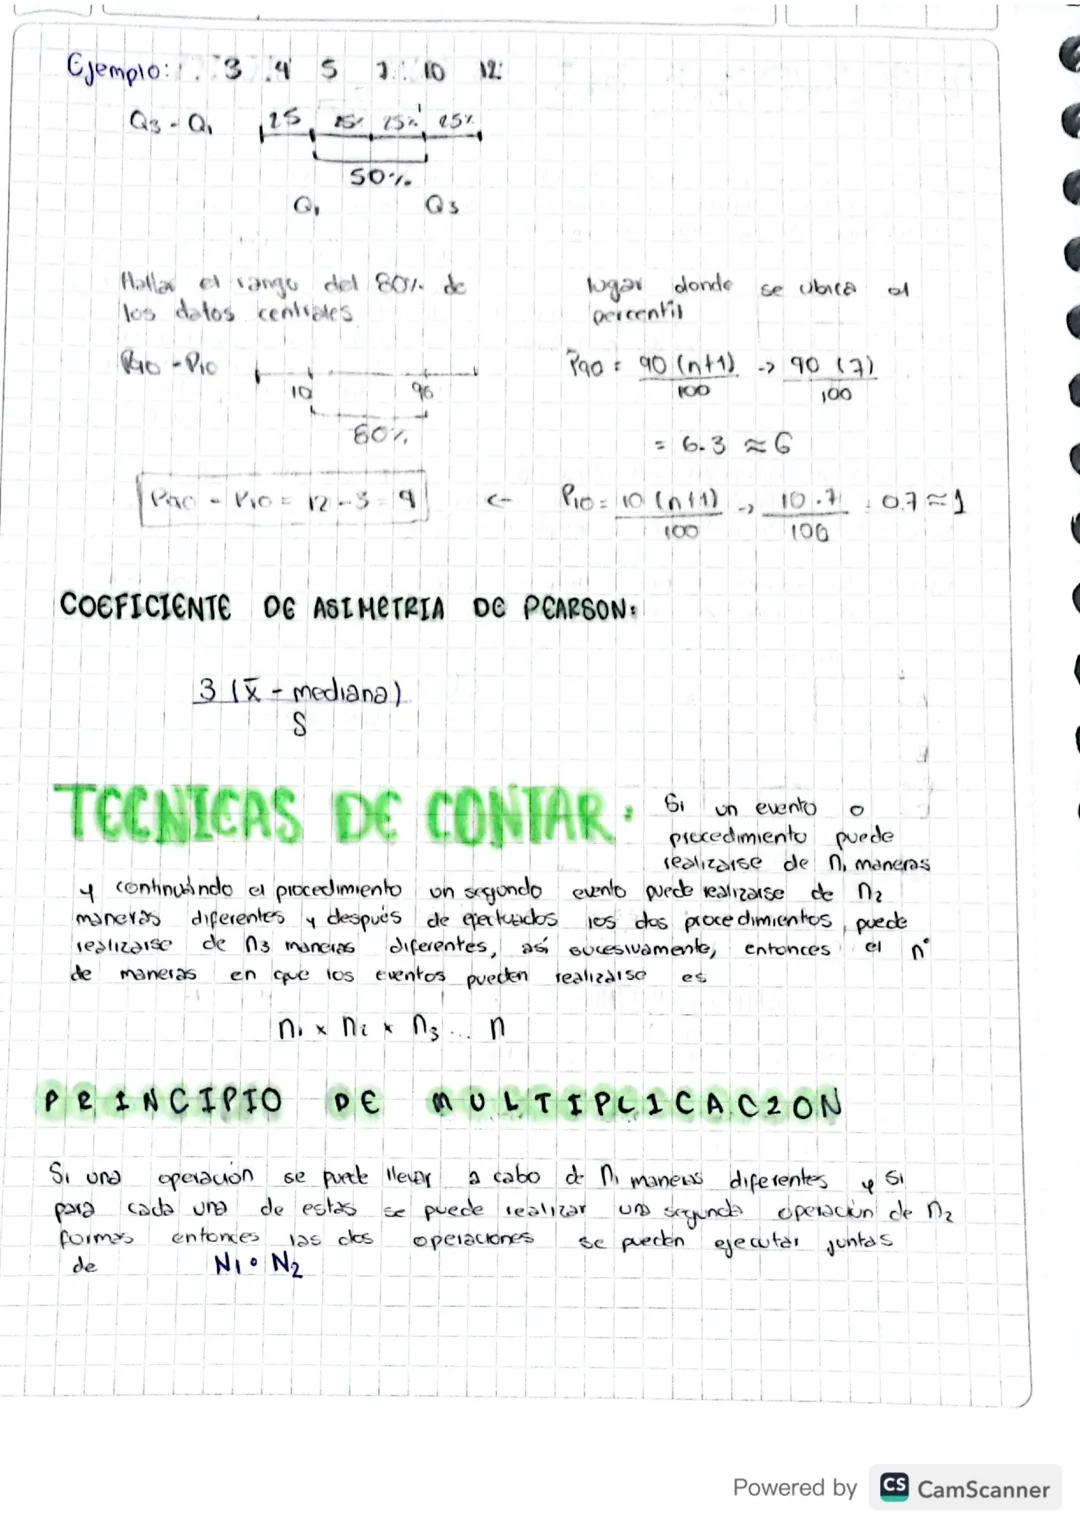 Ejemplo: 3 4 5 7 10 12
Q3 - Q1 25 25% 25% 25%
50%
Q1 Q3
Hallar el rango del 80% de
los datos centrales
lugar donde se ubica el
percentil
P90 - P10
10 90
80%
P90 = 90 (n+1) / 100 -> 90 (7) / 100
= 6.3 ≈ 6
P90 - P10 = 12 - 3 = 9 <- P10 = 10 (n+1) / 100 -> 10 . 7 / 100 = 0.7 ≈ 1
COEFICIENTE DE ASIMETRIA DE PEARSON:
3 (x̄ - mediana)
S
TECNICAS DE CONTAR: Si un evento o
procedimiento puede
realizarse de n1 maneras
y continuando el procedimiento un segundo evento puede realizarse de n2
maneras diferentes y después de efectuados los dos procedimientos, puede
realizarse de n3 maneras diferentes, así sucesivamente, entonces el n°
de maneras en que los eventos pueden realizarse es
n1 x n2 x n3 ... n
PRINCIPIO DE MULTIPLICACION
Si una operación se puede llevar a cabo de n1 maneras diferentes y si
para cada una de estas se puede realizar una segunda operación de n2
formas entonces las dos operaciones se pueden ejecutar juntas
de N1 • N2
Powered by CS CamScanner